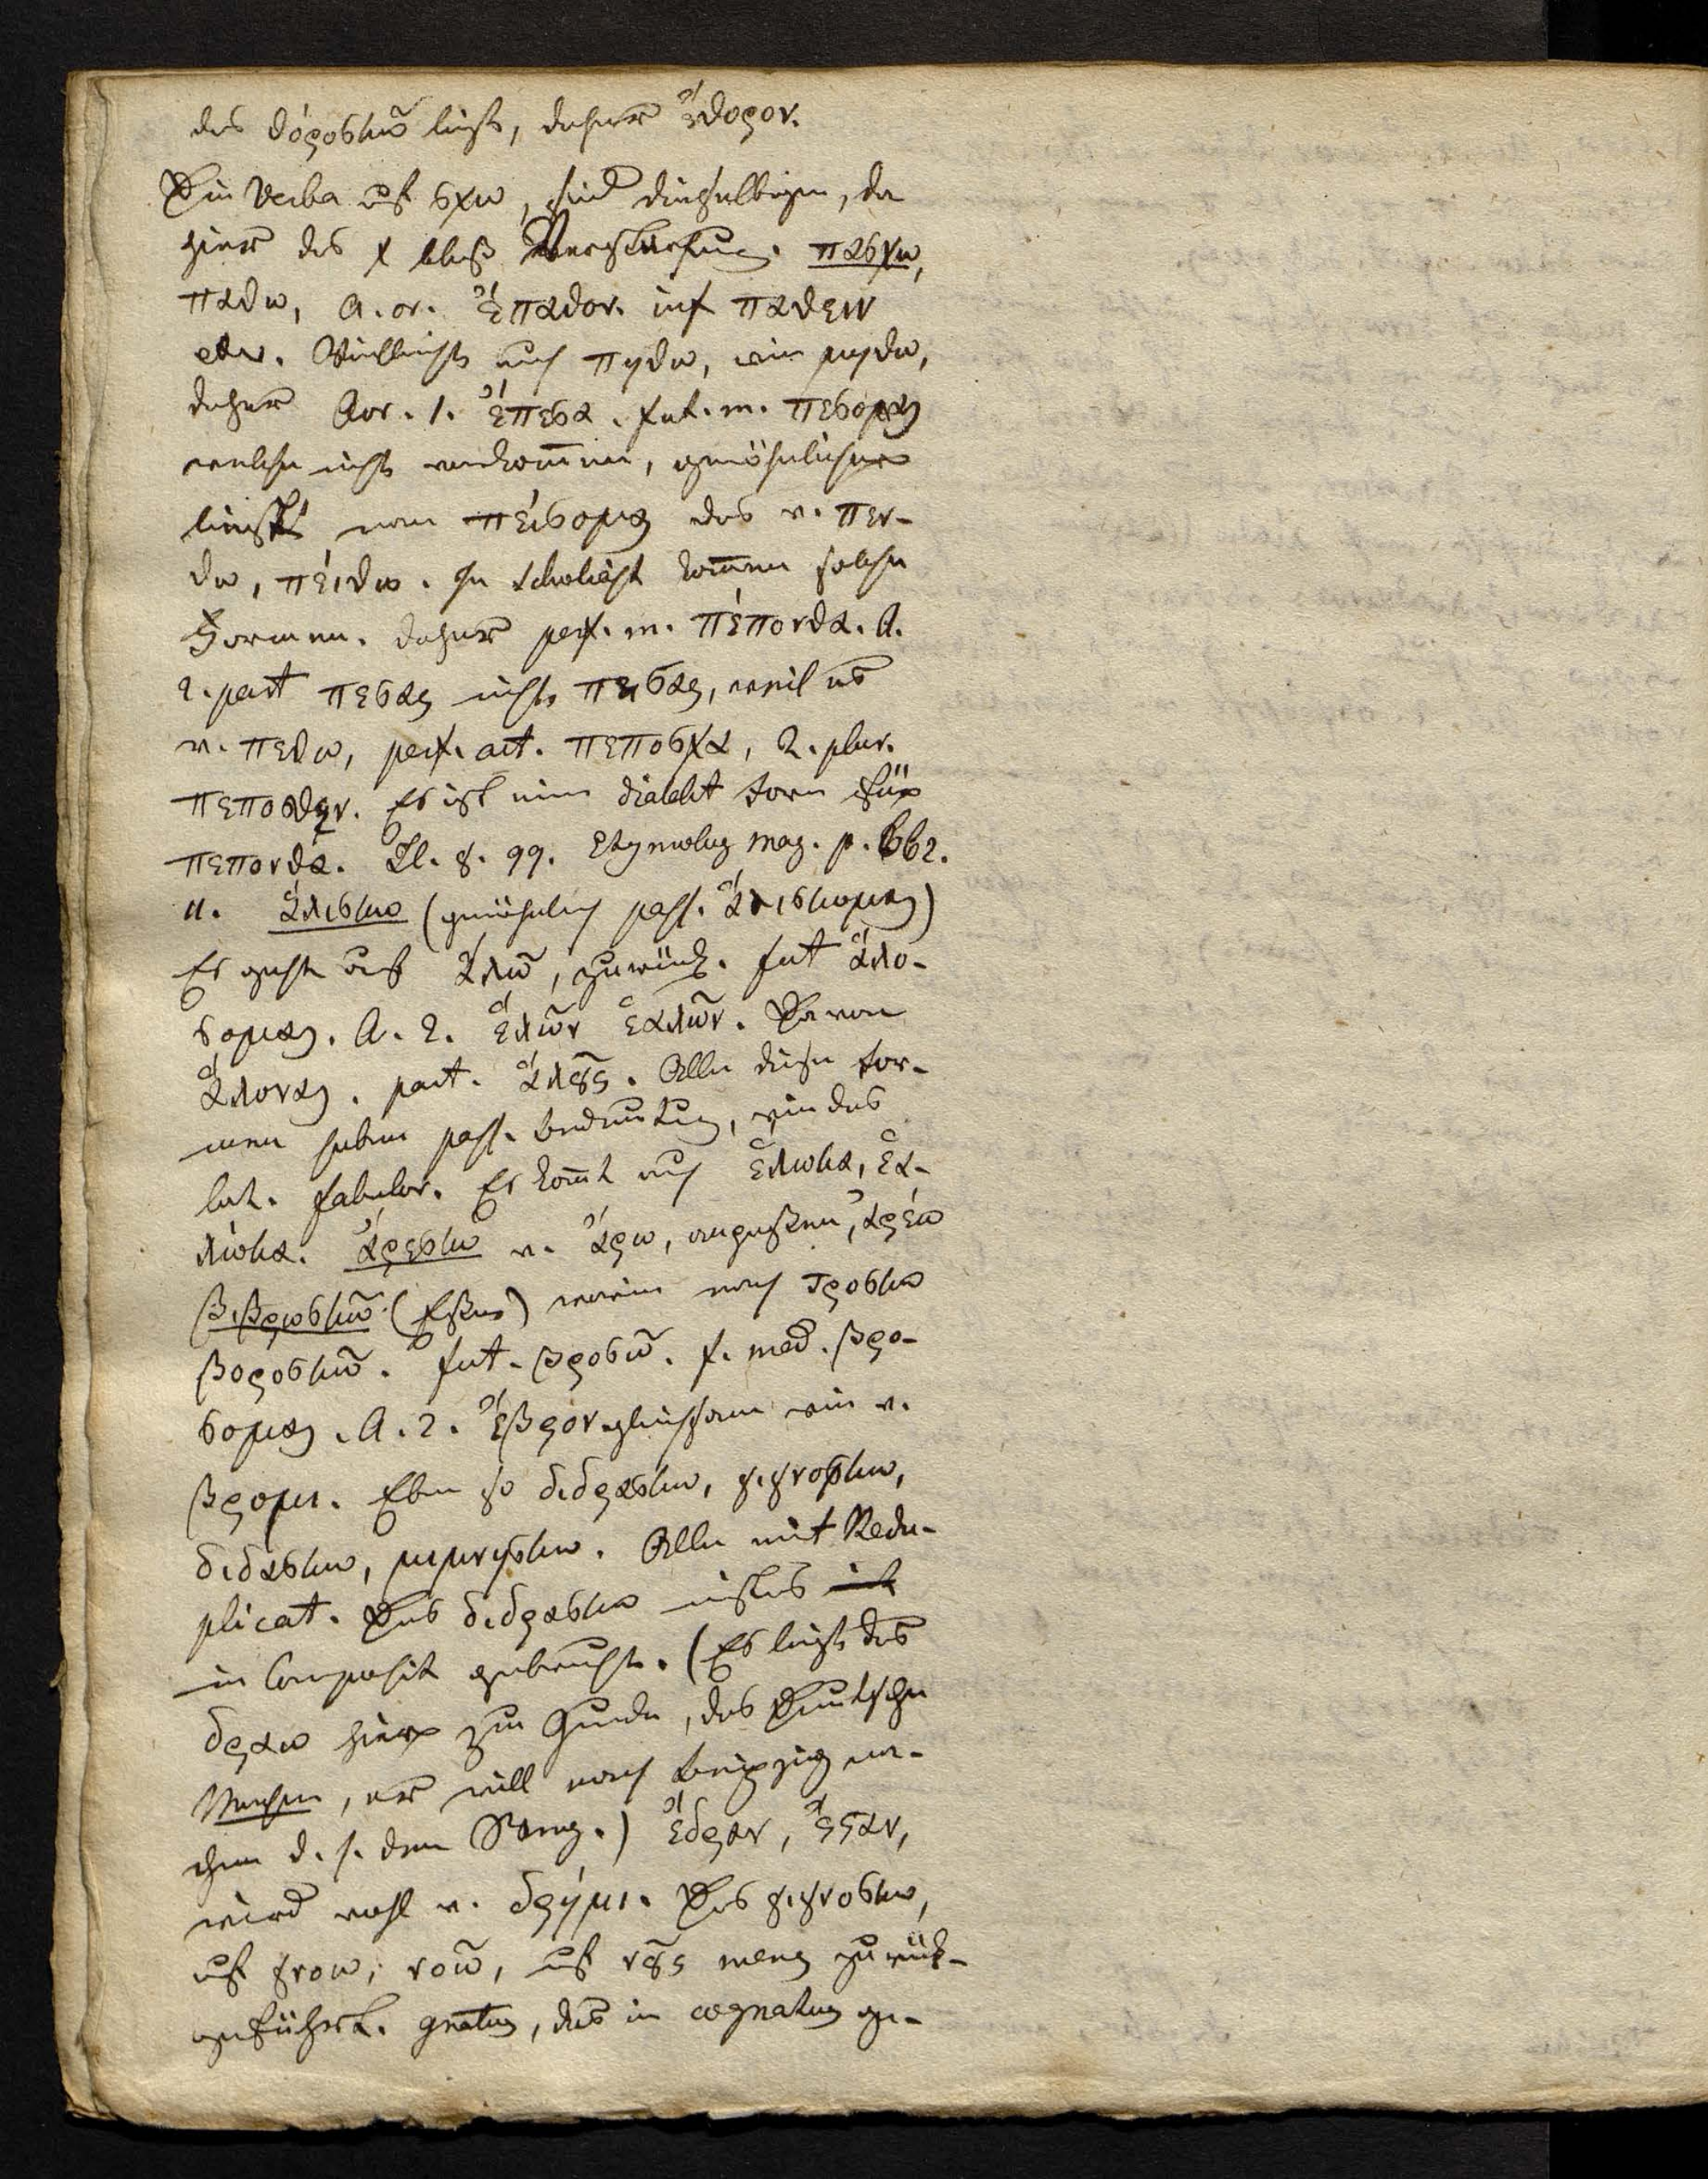 das θόροσκω̃ liegt, daher ἔθορον.
Die Verba auf σχω, sind dieselbigen, da
hier das χ bloß Verstärkung. πασχω,
παθω, A. or. ἔπαθον. inf παθειν
etw. Vielleicht auch πηθω, wie μηθω,
daher Aor. 1. ἔπεσα. fut. m. πεσομαι
welche nicht vorkommen, gewöhnlicher
von πέισομαι das v. πεν-
θω, πέιθω. Im Scholiast kommen solche
Formen. daher perf. m. πέπονθα. A.
2. part πεσας nicht πεισας, weil es
v. πεθω, perf. act. πεποσχα, 2. plur.
πεποσθεν. Es ist eine dialekt form für
πεπονθα. Il. γ. 99. Etymolog mag. p. 662.
11. ἁλισκω (gewöhnlich pass. ἁλισκομαι)
Es geht auf ἁλω̃, zurück. fut ἁλο-
σομαι. A. 2. ἕλω̃ν ἑαλω̃ν. Davon
ἁλοναι. part. ἁλους. Alle diese for-
men haben pass. bedeutung, wie das
lat. fabulor. Es kommt auch ἑλωκα, ἑα-
λώκα. ἀρεσκω v. ἄρω, ἀρέω
βιβρωσκω̃ (Eßen) wie τροσκω
βοροσκω̃. fut. βροσω̃. f. med. βρο-
σομαι. A. 2. ἔβρον gleichsam wie v.
βρομι. Eben so διδρασκω, γιγνοσκω,
διδασκω, μιμνησκω. Alle mit Redu-
plicat. Das διδρασκω
in Composit gebraucht. (Es liegt das
δραω hier zum Grunde, das Deutsche
Machen, er will nach Leipzig ma-
chen d. h. den Weg.) ἔδραν, ἔσταν,
wird wohl v. δρήμι. Das γιγνοσκω,
auf γνοω, νοω̃, auf νους mens zurück-
geführt. gnatus, das in cognatus ge-